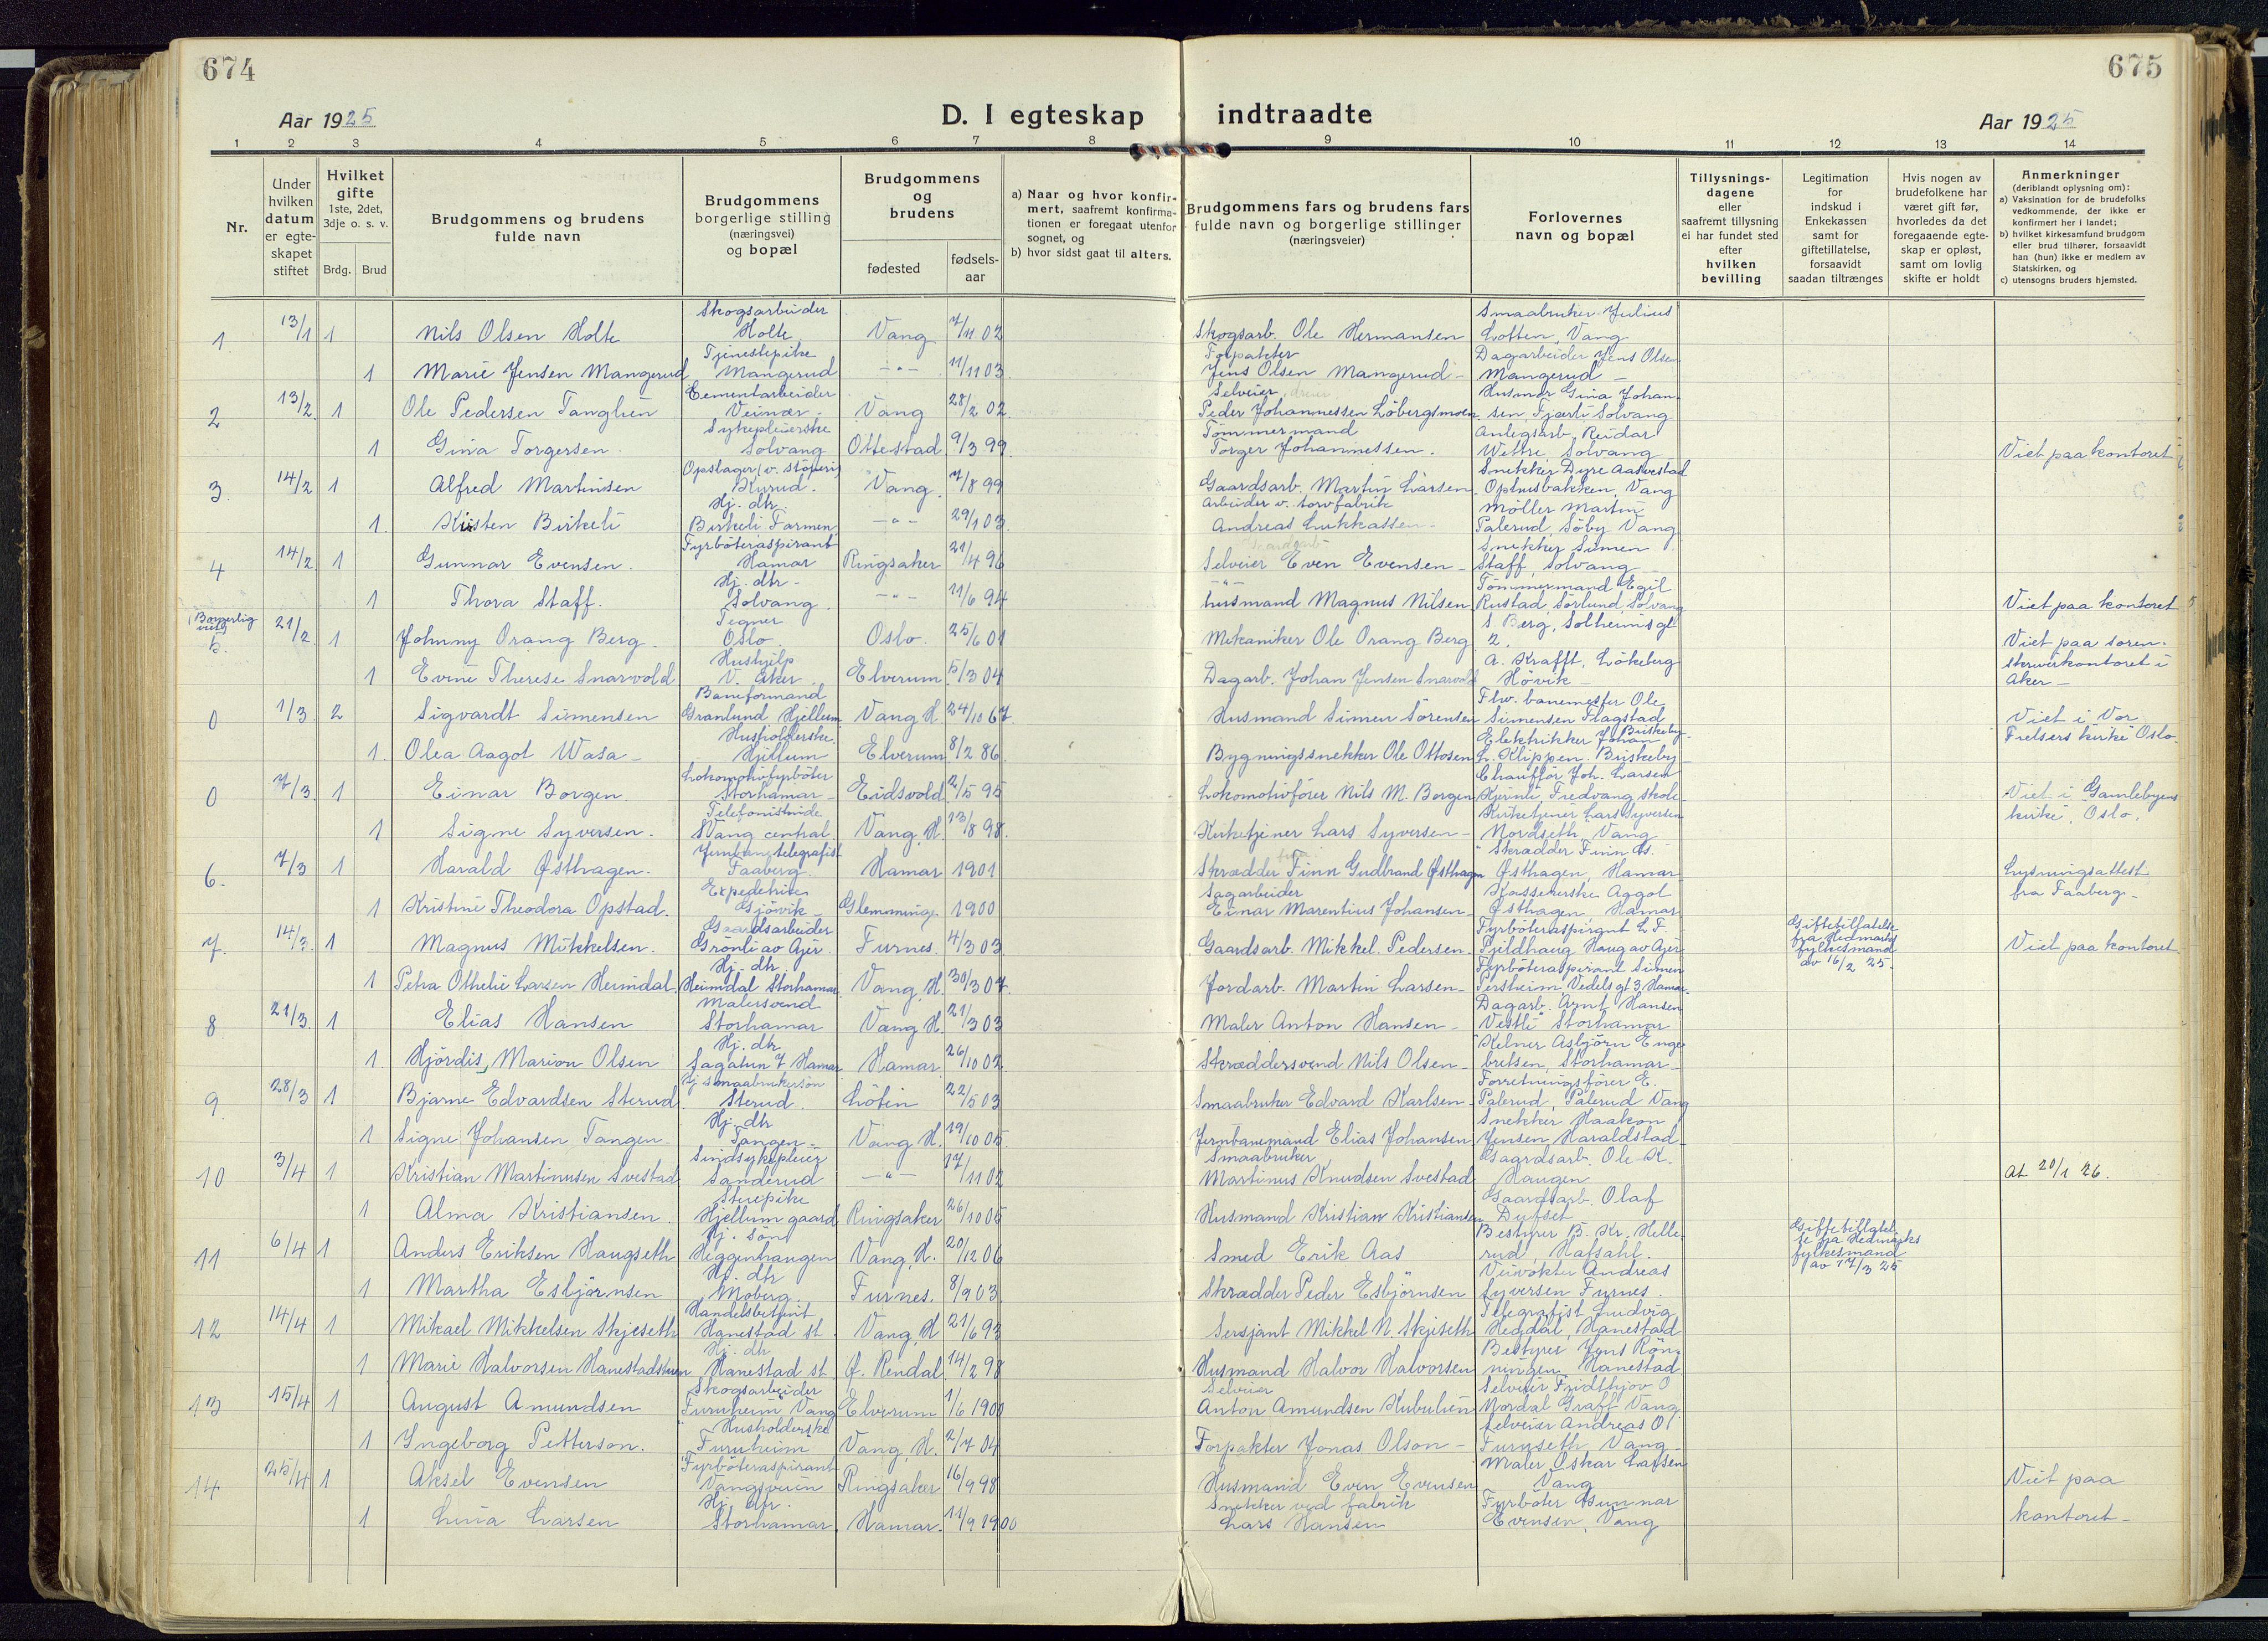 674
675
Aar 1925
D. I egteskap indtraadte
Aar 1925
1 2 3 4 5 6 7 8 9 10 11 12 13 14
Nr.
Under hvilken datum er egteskapet stiftet
Hvilket gifte 1ste, 2det, 3dje o. s. v.
Brdg. Brud
Brudgommens og brudens fulde navn
Brudgommens borgerlige stilling (næringsvei) og bopæl
Brudgommens og brudens
fødested
fødselsaar
a) Naar og hvor konfirmert, saafremt konfirmationen er foregaat utenfor sognet, og
b) hvor sidst gaat til alters.
Brudgommens fars og brudens fars fulde navn og borgerlige stillinger (næringsveier)
Forlovernes navn og bopæl
Tillysningsdagene eller saafremt tillysning ei har fundet sted efter hvilken bevilling
Legitimation for indskud i Enkekassen samt for giftetillatelse, forsaavidt saadan tiltrænges
Hvis nogen av brudefolkene har været gift før, hvorledes da det foregaaende egteskap er opløst, samt om lovlig skifte er holdt
Anmerkninger (deriblandt oplysning om):
a) Vaksination for de brudefolks vedkommende, der ikke er konfirmert her i landet;
b) hvilket kirkesamfund brudgom eller brud tilhører, forsaavidt han (hun) ikke er medlem av Statskirken, og
c) utensogns bruders hjemsted.
1. 13/1 1 Nils Olsen Holte Skogsarbeider Holte Vang 7/11 02 Skogsarb. Ole Hermansen Smaabruker Julius Lotten, Vang
1 Marie Jensen Mangerud Tjenestepike Mangerud -"- 11/11 03. Forpakter Jens Olsen Mangerud - Dagarbeider Jens Olsen Mangerud -
2 13/2. 1 Ole Pedersen Tanglien Cementarbeider Veinær. Vang 28/2 02. Selveier Peder Johannessen Löbergsmoen Husmor Gina Johansen Fjærli Solvang
1 Gina Torgersen. Sykepleierske Solvang Ottestad 9/3 99. Tömmermand Torger Johannessen. Anlegsarb. Reidar Wettre, Solvang Viet paa kontoret
3. 14/2 1 Alfred Martinsen Opslager (v. støperi) Kurud. Vang. 7/8 99 Gaardsarb. Martin Larsen. Snekker Dyre Aasvestad Ophusbakken, Vang
1. Kristen Birkeli Hj. dtr. Birkeli Farmen -"- 29/1 03. Arbeider v. torvfabrik Andreas Lukkassen - Møller Martin Palerud, Söby Vang
4 14/2. 1 Gunnar Evensen. Fyrbøteraspirant Hamar Ringsaker 21/4 96 Selveier Even Evensen - Snekker Simen Staff, Solvang -
1 Thora Staff. Hj. dtr - Solvang. -"- 11/6 94 husmand Magnus Nilsen Tömmermand Egil Rustad, Sörlund, Solvang Viet paa kontoret
(Borgerlig viet) 5. 21/2. 1 Johnny Orang Berg. Tegner Oslo. Oslo. 25/6 01 Mekaniker Ole Orang Berg S Berg, Solheimsgt 2. Viet paa sorenskriverkontoret i Aker -
1 Evine Therese Snarvold Hushjelp V. Aker. Elverum 5/3 04 Dagarb. Johan Jensen Snarvold A. Krafft, Lökeberg Hövik -
0 1/3. 2 Sigvardt Simensen Baneformand Granlund Hjellum Vang H. 24/10 67. Husmand Simen Sörensen Flw. banemester Ole Simensen Flagstad Briskeby. Viet i Vor Frelsers kirke Oslo.
1. Olea Aagot Wasa - Husholderske Hjellum Elverum 8/2 86. Bygningssnekker Ole Ottosen Elektrikker Johan L. Klippen. Briskeby
0 7/3. 1 Einar Borgen. Lokomotivfyrböter Storhamar - Eidsvold 2/5 95 Lokomotivfører Nils M. Borgen Chauffør Joh. Larsen Kjernli, Fredvang skole Viet i Gamlebyens kirke, Oslo.
1 Signe Syversen. Telefonistinde Vang central Vang, H. 13/8 98. Kirketjener Lars Syversen - Kirketjener Lars Syversen Nordseth, Vang
6. 7/3 1 Harald Østhagen. Jernbanetelegrafist Faaberg. Hamar 1901 Skrædder Finn Gudbrand Østhagen Skrædder Finn Gs. Østhagen, Hamar Lysningsattest fra Faaberg -
1 Kristine Theodora Opstad. Expeditrice Gjövik - Glemminge. 1900 Sagarbeider Einar Marentius Johansen - Kassererske Aagot Østhagen, Hamar
7. 14/3. 1 Magnus Mikkelsen. Gaardsarbeider Grönli av Ajer. Furnes. 4/3 03 Gaardsarb. Mikkel Pedersen. Fyrböteraspirant L. F. Fjildhaug Haug av Ajer Giftetillatelse fra Hedmarks fylkesmand av 16/2 25. Viet paa kontoret
1 Petra Othelie Larsen Heimdal. Hj. dtr. Heimdal Storhamar Vang, H. 30/3 07. Jordarb. Martin Larsen - Fyrböteraspirant Simen Persheim Vedels gt 3, Hamar.
8 21/3. 1 Elias Hansen Malersvend Storhamar Vang H. 21/3 03 Maler Anton Hansen - Dagarb. Arnt Hansen Vestli Storhamar
1. Hjördis Marion Olsen Hj. dtr. Sagatun 7 Hamar Hamar. 26/10 02. Skræddersvend Nils Olsen - Kelner Asbjörn Engebretsen, Storhamar -
9. 28/3 1 Bjarne Edvardsen Sterud. Hj. smaabrukersøn Sterud. Löten 22/5 03 Smaabruker Edvard Karlsen - Forretningsfører E. Palerud, Palerud Vang
1 Signe Johansen Tangen Hj. dtr Tangen - Vang H. 19/10 05. Jernbanemand Elias Johansen Snekker Haakon Jensen Haraldstad
10 3/4 1 Kristian Martinusen Svestad Sindsykepleier Sanderud -"- 17/11 02 Smaabruker Martinus Knudsen Svestad Gaardsarb. Ole K. Haugen At 20/1 26.
1 Alma Kristiansen. Stuepike Hjellum gaard Ringsaker 26/10 05 Husmand Kristian Kristiansen Gaardsarb. Olaf Dufset
11 6/4 1 Anders Eriksen Haugseth Hj. sønn Heggenhaugen Vang, H. 20/12 06 Smed Erik Aas Bestyrer B. Kr. Hellerud, Hafsahl. Giftetillatelse fra Hedmarks fylkesmand av 17/3 25
1 Martha Esbjørnsen Hj. dtr Moberg. Furnes. 8/9 03 Skrædder Peder Esbjörnsen Veivokter Andreas Syversen Furnes.
12 14/4 1 Mikael Mikkelsen Skjeseth Handelsbetjent Hanestad st. Vang, H 21/6 93 Sersjant Mikkel N. Skjeseth Telegrafist Ludvig Hegdal, Hanestad
1 Marie Halvorsen Hanestadstuen Hj. dtr. Hanestad st. Ø. Rendal 14/2 98 Husmand Halvor Halvorsen Bestyrer Jens Rönningen, Hanestad
13 15/4 1 August Amundsen Skogsarbeider Furuheim Vang Elverum 1/6 1900 Selveier Anton Amundsen Kubulien Selveier Fridthjov O Nordal Graff Vang
1 Ingeborg Petterson. Husholderske Furuheim Vang, H. 2/7 04 Forpakter Jonas Olson - Selveier Andreas O Furuseth, Vang
14 25/4 1 Aksel Evensen Fyrböteraspirant Vangsveien Ringsaker 16/9 98 Husmand Even Evensen Maler Oskar Larsen Vang Viet paa kontoret -
1 Lina Larsen Hj. dtr. Storhamar Hamar. 11/9 1900 Snekker ved fabrik Lars Hansen Fyrböter Gunnar Evensen, Vang